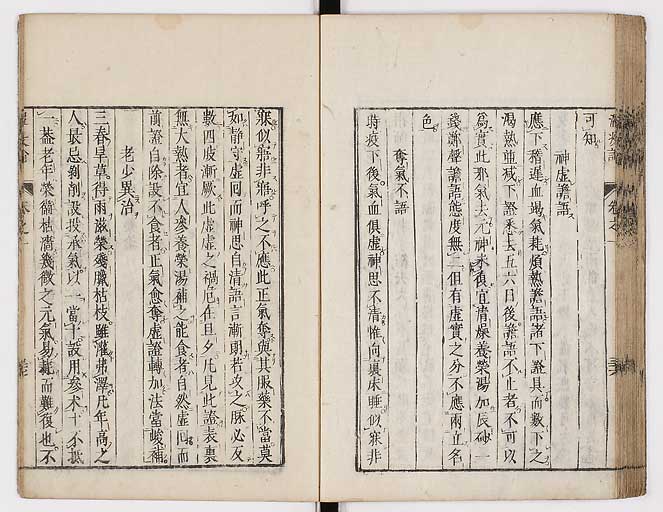 可知
神虛譫語
應下稽遲血竭氣耗煩熱譫語諸下證具而數下之
渴熱並减下證悉去五六日後譫語不止者不可以
爲實此邪氣去元神未復宜清燥養榮湯加辰砂一
錢鄭聲譫語態度無二但有虛實之分不應兩立名
色
奪氣不語
時疫下後氣血俱虛神思不清惟向裏床睡似寐非
寐似寤非寤呼之不應此正氣奪與其服藥不當莫
如靜守虛回而神思自清語言漸朗若攻之脉必反
數四肢漸厥此虛虛之禍危在旦夕凡見此證表裏
無大熱者宜人參養榮湯補之能食者自然虛回而
前證自除設不食者正氣愈奪虛證轉加法當峻補
老少異治
三春旱草得雨滋榮殘臘枯枝雖灌弗澤凡年高之
人最忌剥削設投承氣以一當十設用參术十不抵
一葢老年榮衞枯澀幾微之元氣易耗而難復也不